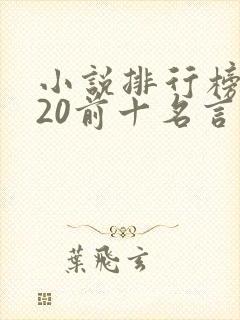 小說排行榜
20前十名言
葉飛玄